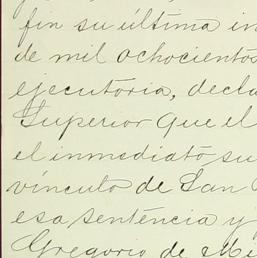 fin su última in
de mil ochocientos
ejecutoria, decla
Superior que el
el inmediato su
vínculo de San
esa sentencia y
Gregorio de Mi